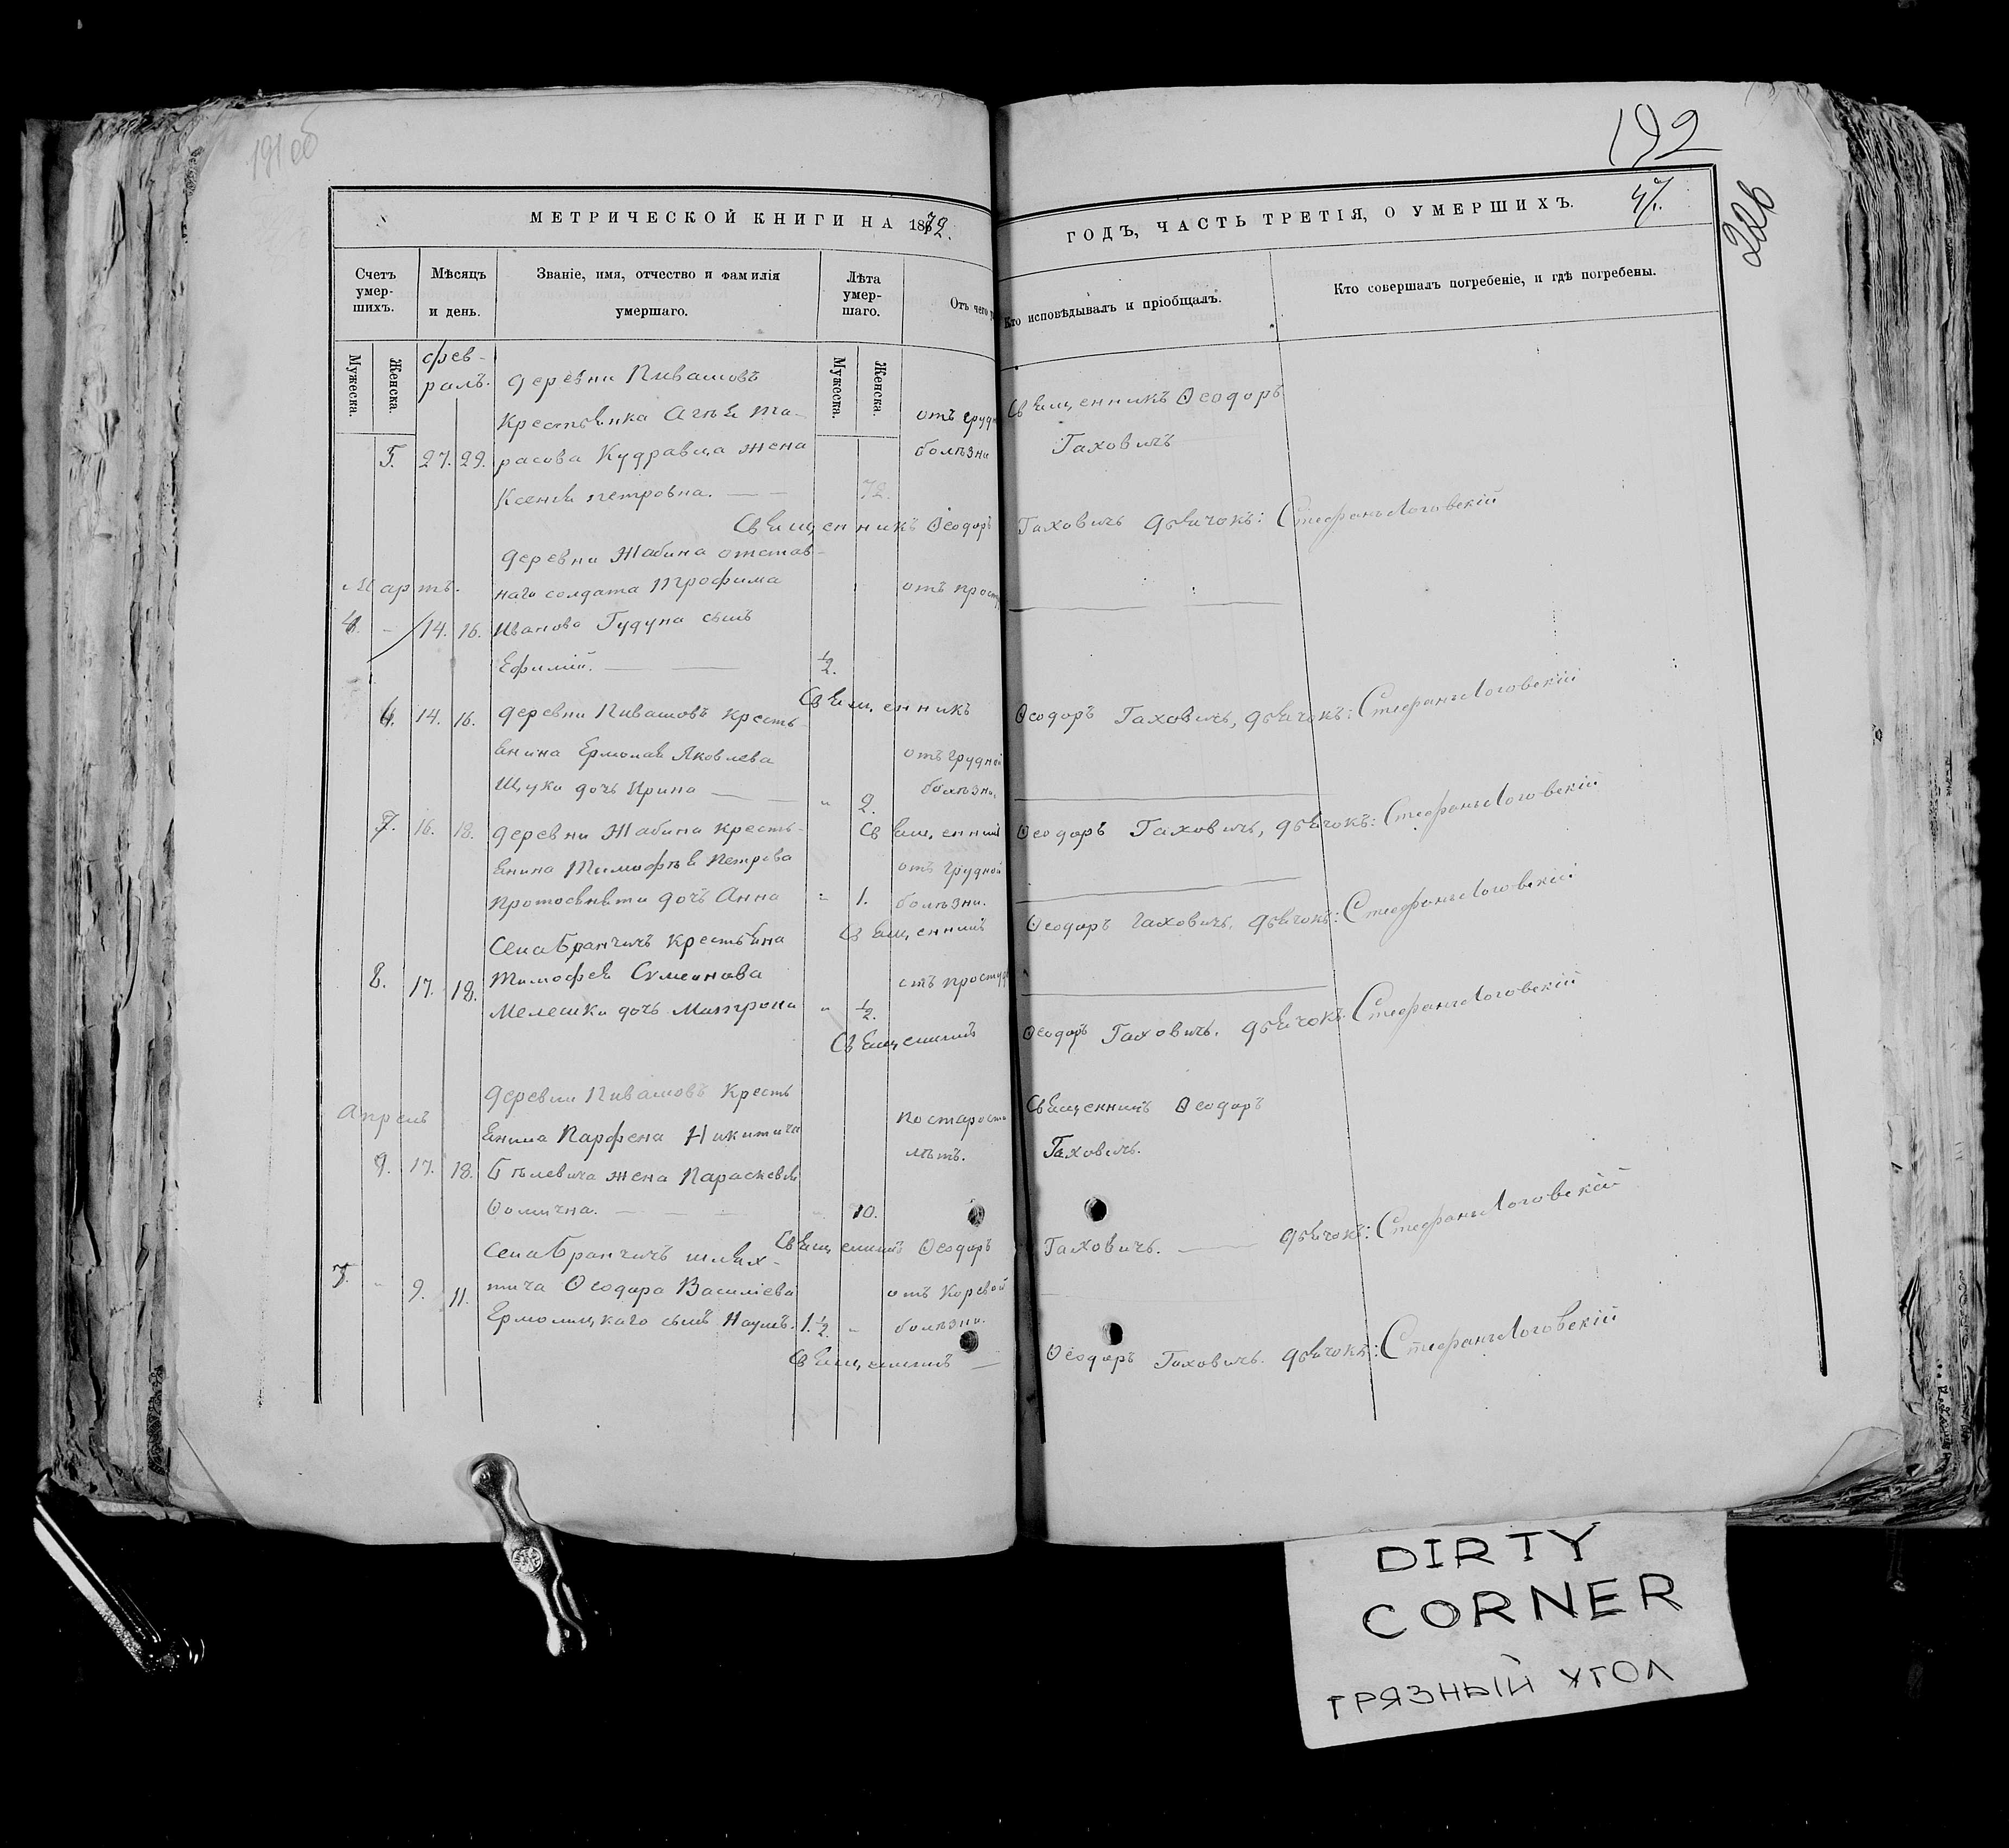 191об
192
226
47.
МЕТРИЧЕСКОЙ КНИГИ НА 1872. ГОДЪ, ЧАСТЬ ТРЕТІЯ, О УМЕРШИХЪ.
Счетъ умер-шихъ.
Мѣсяцъ и день.
Званіе, имя, отчество и фамилія умершаго.
Лѣта умер-шаго.
Отъ чего
Кто исповѣдывалъ и пріобщалъ.
Кто совершалъ погребеніе, и гдѣ погребены.
Мужеска.
Женска.
Мужеска.
Женска.
фев-
раль. деревни Пивашовъ
Крестьянка Агѣя Та- отъ груд Священникъ Ѳеодоръ
5. 27. 29. расова Кудравца жена болѣзни Гаховичъ
Ксенія петровна. — — 72.
Священникъ Ѳеодоръ Гаховичъ дьячокъ: Стефанъ Логовскій
деревни Жабина отстав-
Мартъ. наго солдата Трофима отъ прост
4. - 14. 16. Иванова Гудуна сынъ
Ефимій. — — ½.
Священникъ Ѳеодоръ Гаховичъ, дьячокъ: Стефанъ Логовскій
6. 14. 16. деревни Пивашовъ Кресть-
янина Ермолая Яковлева отъ грудной
Щуки дочь Ирина — — " 2. болѣзни.
Священникъ Ѳеодоръ Гаховичъ, дьячокъ: Стефанъ Логовскій
7. 16. 18. деревни Жабина Кресть-
янина Тимофѣя Петрова отъ грудной
дочь Анна " 1. болѣзни.
Священникъ Ѳеодоръ Гаховичъ, дьячокъ: Стефанъ Логовскій
села Бранчичъ Крестьяна
8. 17. 18. Тимофея Сумеонова отъ простуд
Мелешки дочь Матрона " ½.
Священникъ Ѳеодоръ Гаховичъ. дьячокъ. Стефанъ Логовскій
деревни Пивашовъ Кресть
Апрель янина Парфена Никитича по старости Священникъ Ѳеодоръ
9. 17. 18. Бѣлевича жена Параскевія лѣтъ. Гаховичъ.
Ѳомична. — — — 70.
Священникъ Ѳеодоръ Гаховичъ. — дьячокъ: Стефанъ Логовскій
села Бранчичъ шлях-
5. " 9. 11. тича Ѳеодора Василіева отъ Коревой
Ермолицкаго сынъ Наумъ. 1.½. " болѣзни.
Священникъ — Ѳеодоръ Гаховичъ. дьячокъ: Стефанъ Логовскій
DIRTY
CORNER
ГРЯЗНЫЙ УГОЛ